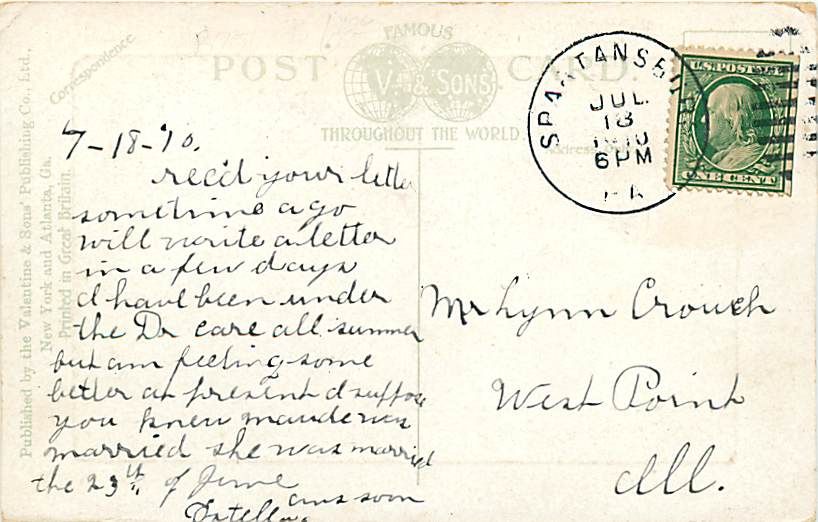 FAMOUS
POST CARD
V. & SONS
THROUGHOUT THE WORLD.
Correspondence.
Published by the Valentine & Sons' Publishing Co., Ltd.,
New York and Atlanta, Ga.
Printed in Great Britain.
SPARTANSB
JUL
18
6 PM
PA
U.S. POSTAGE
ONE CENT
7-18-10.
recd your letter
sometime ago
will write a letter
in a few days
I have been under
the Dr care all summer
but am feeling some
better at present I suppose
you knew maude was
married she was married
the 23rd of June
ans soon
Mr Lynn Crouch
West Point
Ill.